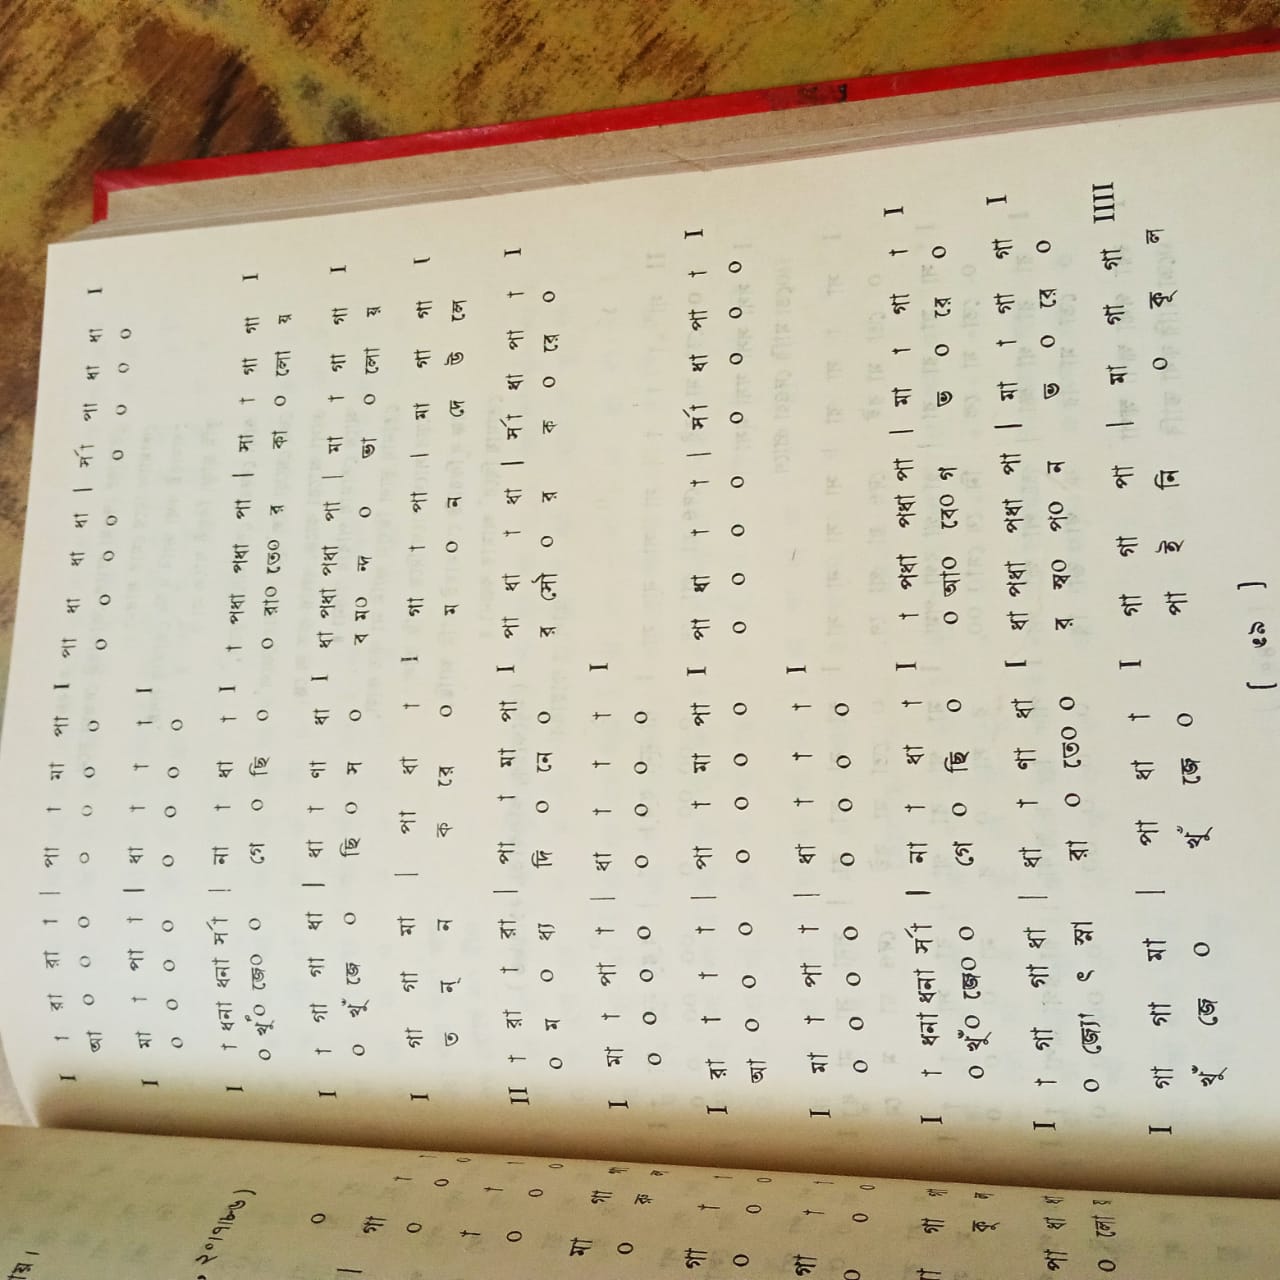 I † রা রা † | পা † মা পা I পা ধা ধা ধা | র্সা পা ধা ধা I
আ ০ ০ ০ ০ ০ ০ ০ ০ ০ ০ ০ ০ ০ ০ ০
I মা † পা † | ধা † † † I
০ ০ ০ ০ ০ ০ ০ ০
I † ধনা ধনা র্সা | না † ধা † I † পধা পধা পা | মা † গা গা I
০ খুঁ০ জে০ ০ গে ০ ছি ০ ০ রা০ তে০ র কা ০ লো য়
I † গা গা ধা | ধা † ণা ধা I ধা পধা পধা পা | মা † গা গা I
০ খুঁ জে ০ ছি ০ স ০ ব ম০ ন্দ ০ ভা ০ লো য়
I গা গা মা | পা ধা † I গা † পা | মা গা গা I
ত ন্ ন ক রে ০ ম ০ ন দে উ লে
II † রা † রা | পা † মা পা I পা ধা † ধা | র্সা ধা পা † I
০ ম ০ ধ্য দি ০ নে ০ র সৌ ০ র ক ০ রে ০
I মা † পা † | ধা † † † I
০ ০ ০ ০ ০ ০ ০ ০
I রা † † † | পা † মা পা I পা ধা † † | র্সা ধা পা † I
আ ০ ০ ০ ০ ০ ০ ০ ০ ০ ০ ০ ০ ০ ০ ০
I মা † পা † | ধা † † † I
০ ০ ০ ০ ০ ০ ০ ০
I † ধনা ধনা র্সা | না † ধা † I † পধা পধা পা | মা † গা † I
০ খুঁ০ জে০ ০ গে ০ ছি ০ ০ আ০ বে০ গ ভ ০ রে ০
I † গা গা ধা | ধা † ণা ধা I ধা পধা পধা পা | মা † গা গা I
০ জ্যো ৎ স্না রা ০ তে০ ০ র স্ব০ প০ ন ভ ০ রে ০
I গা গা মা | পা ধা † I গা গা পা | মা গা গা IIII
খুঁ জে ০ খুঁ জে ০ পা ই নি ০ কূ ল
[ ৫৯ ]